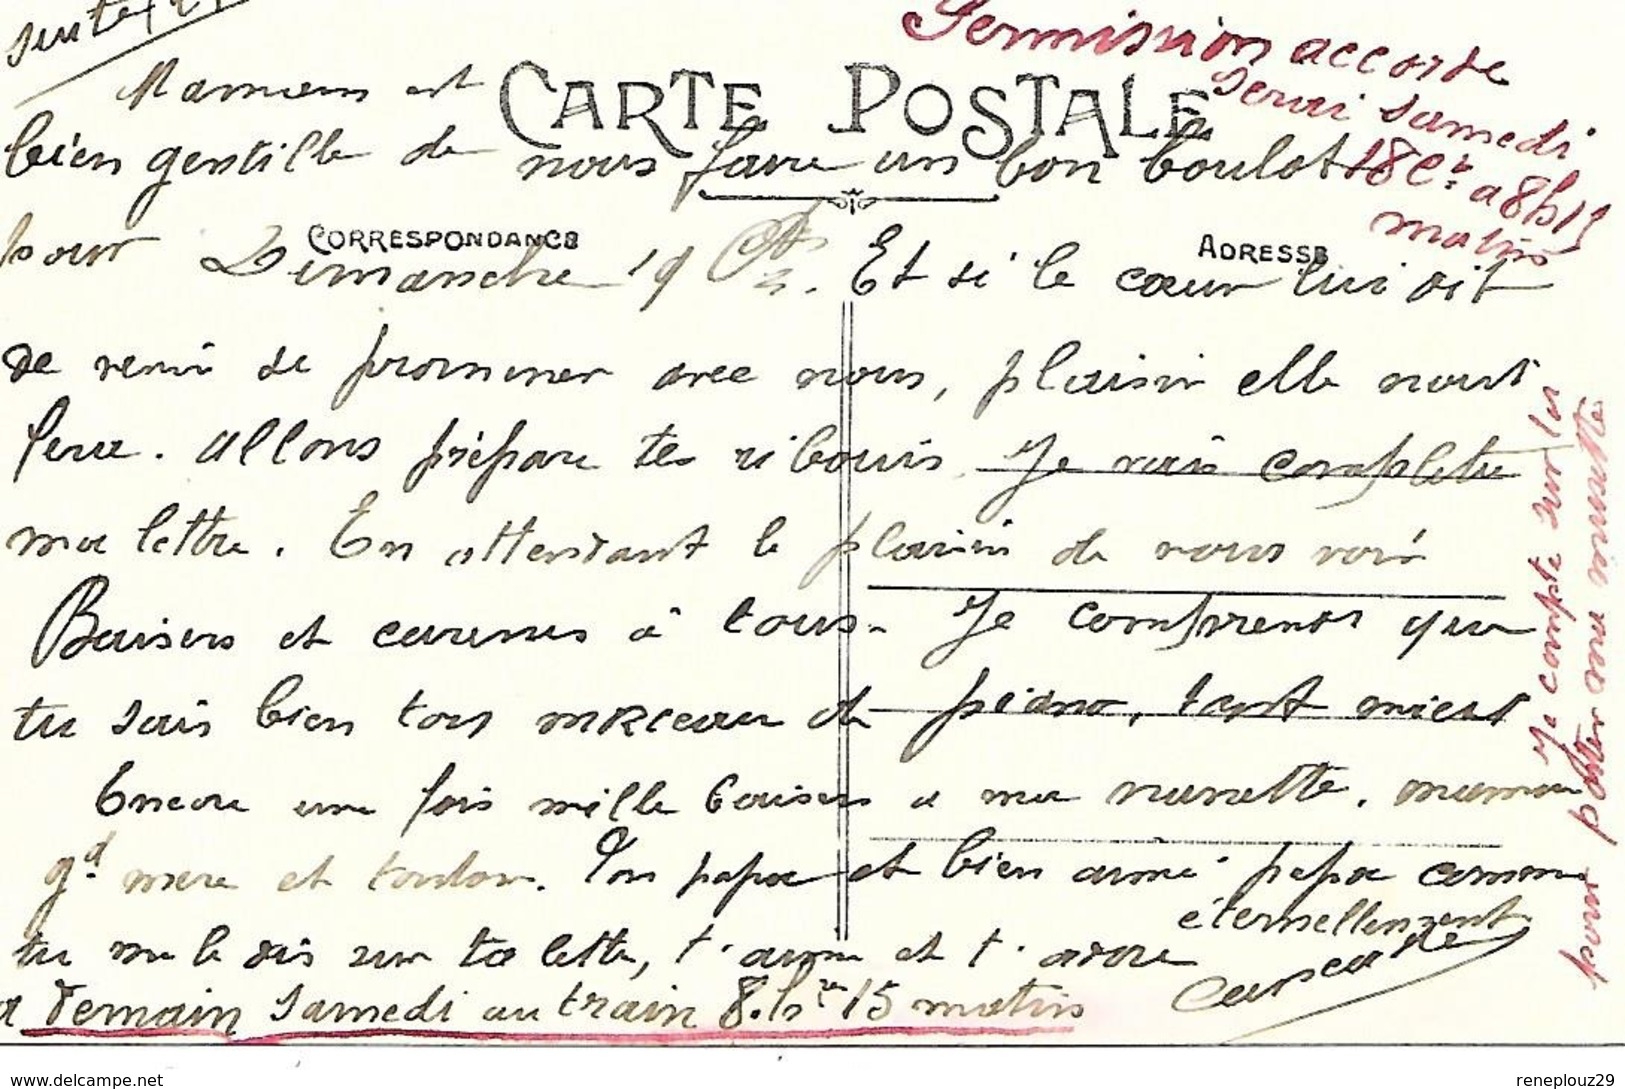 suite
Permission accorde
CARTE POSTALE
serai samedi
18 Ct a 8h15
matin
Maman est
bien gentille de nous faire un bon boulot
CORRESPONDANCE
ADRESSE
pour Dimanche 19 Ct. Et si le cœur lui dit
de venir se promener avec nous, plaisir elle nous
fera. allons prépare tes ribouis. Je vais completer
ma lettre. En attendant le plaisir de vous voir
Baisers et caresses à tous. Je comprends que
tu sais bien tous morceau de piano, tant mieux
Encore une fois mille baisers a ma nanette. maman
gd mere et tonton. Ton papa et bien aimé papa comme
tu me le dis sur ta lettre, t'aime et t'adore
éternellement
a demain samedi au train 8.hre 15 matin
Je compte sur les
pour porter ma musette
www.delcampe.net
reneplouz29